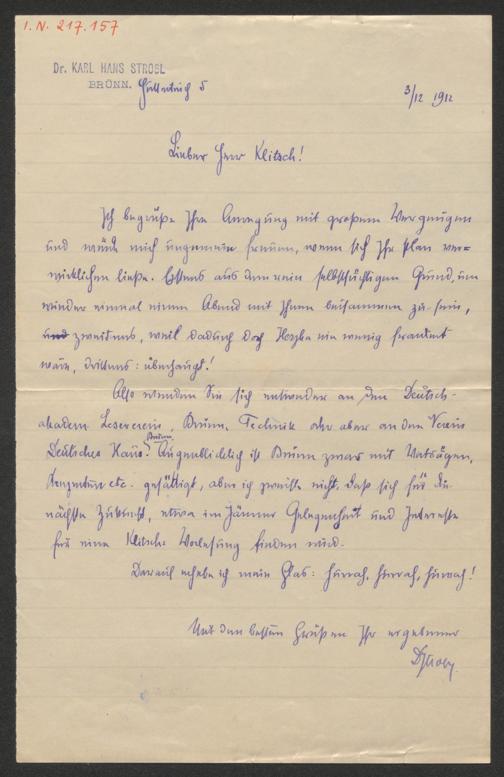 I. N. 217.157
Dr. KARL HANS STROBL
BRÜNN.
3/12 1912
Lieber Herr Klitsch!
Ich begrüße Ihre Anregung mit großem Vergnügen
und würde mich ungemein freuen, wenn sich Ihr Plan ver=
wirklichen ließe. Erstens aus dem rein selbstsüchtigen Grund, um
wieder einmal einen Abend mit Ihnen beisammen zu sein,
und zweitens, weil dadurch doch ein wenig
wäre, drittens: überhaupt!
Also wenden Sie sich entweder an den Deutsch-
akadem. Leseverein, Brünn, Technik oder aber an den Verein
Deutsches Haus, Brünn. Augenblicklich ist Brünn zwar mit Vorträgen,
Konzerten etc. gesättigt, aber ich zweifle nicht, daß sich für die
nächste Zukunft, etwa im Jänner Gelegenheit und Interesse
für eine Klitsch-Vorlesung finden wird.
Darauf erhebe ich mein Glas: hurrah, hurrah, hurrah!
Mit den besten Grüßen Ihr ergebener
DrStrobl.